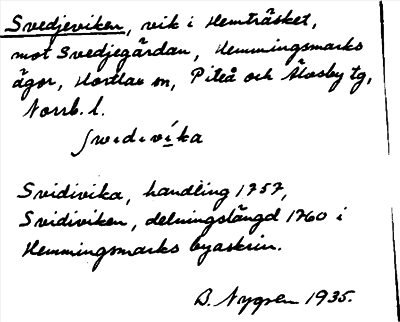 Svedjeviken, vik i Hemträsket,
mot Svedjegärdan, Hemmingsmarks
ägor, Hortlax sn, Piteå och Älvsby tg,
Norrb. l.
Svidivika, handling 1757,
Svidiviken, delningslängd 1760 i
Hemmingsmarks byaskrin.
B. Nygren 1935.